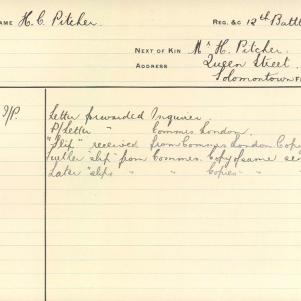 NAME H. C. Pitcher. REG. &C 12th Batt
NEXT OF KIN Mr H. Pitcher.
ADDRESS Queen Street.
Solomontown
I/P. Letter forwarded Inquirer.
P/Letter " Commes London.
"Slip" received from Commes London Copy
Further "slip" from Commes. Copy of same sen
Later "slips " " Copies " "